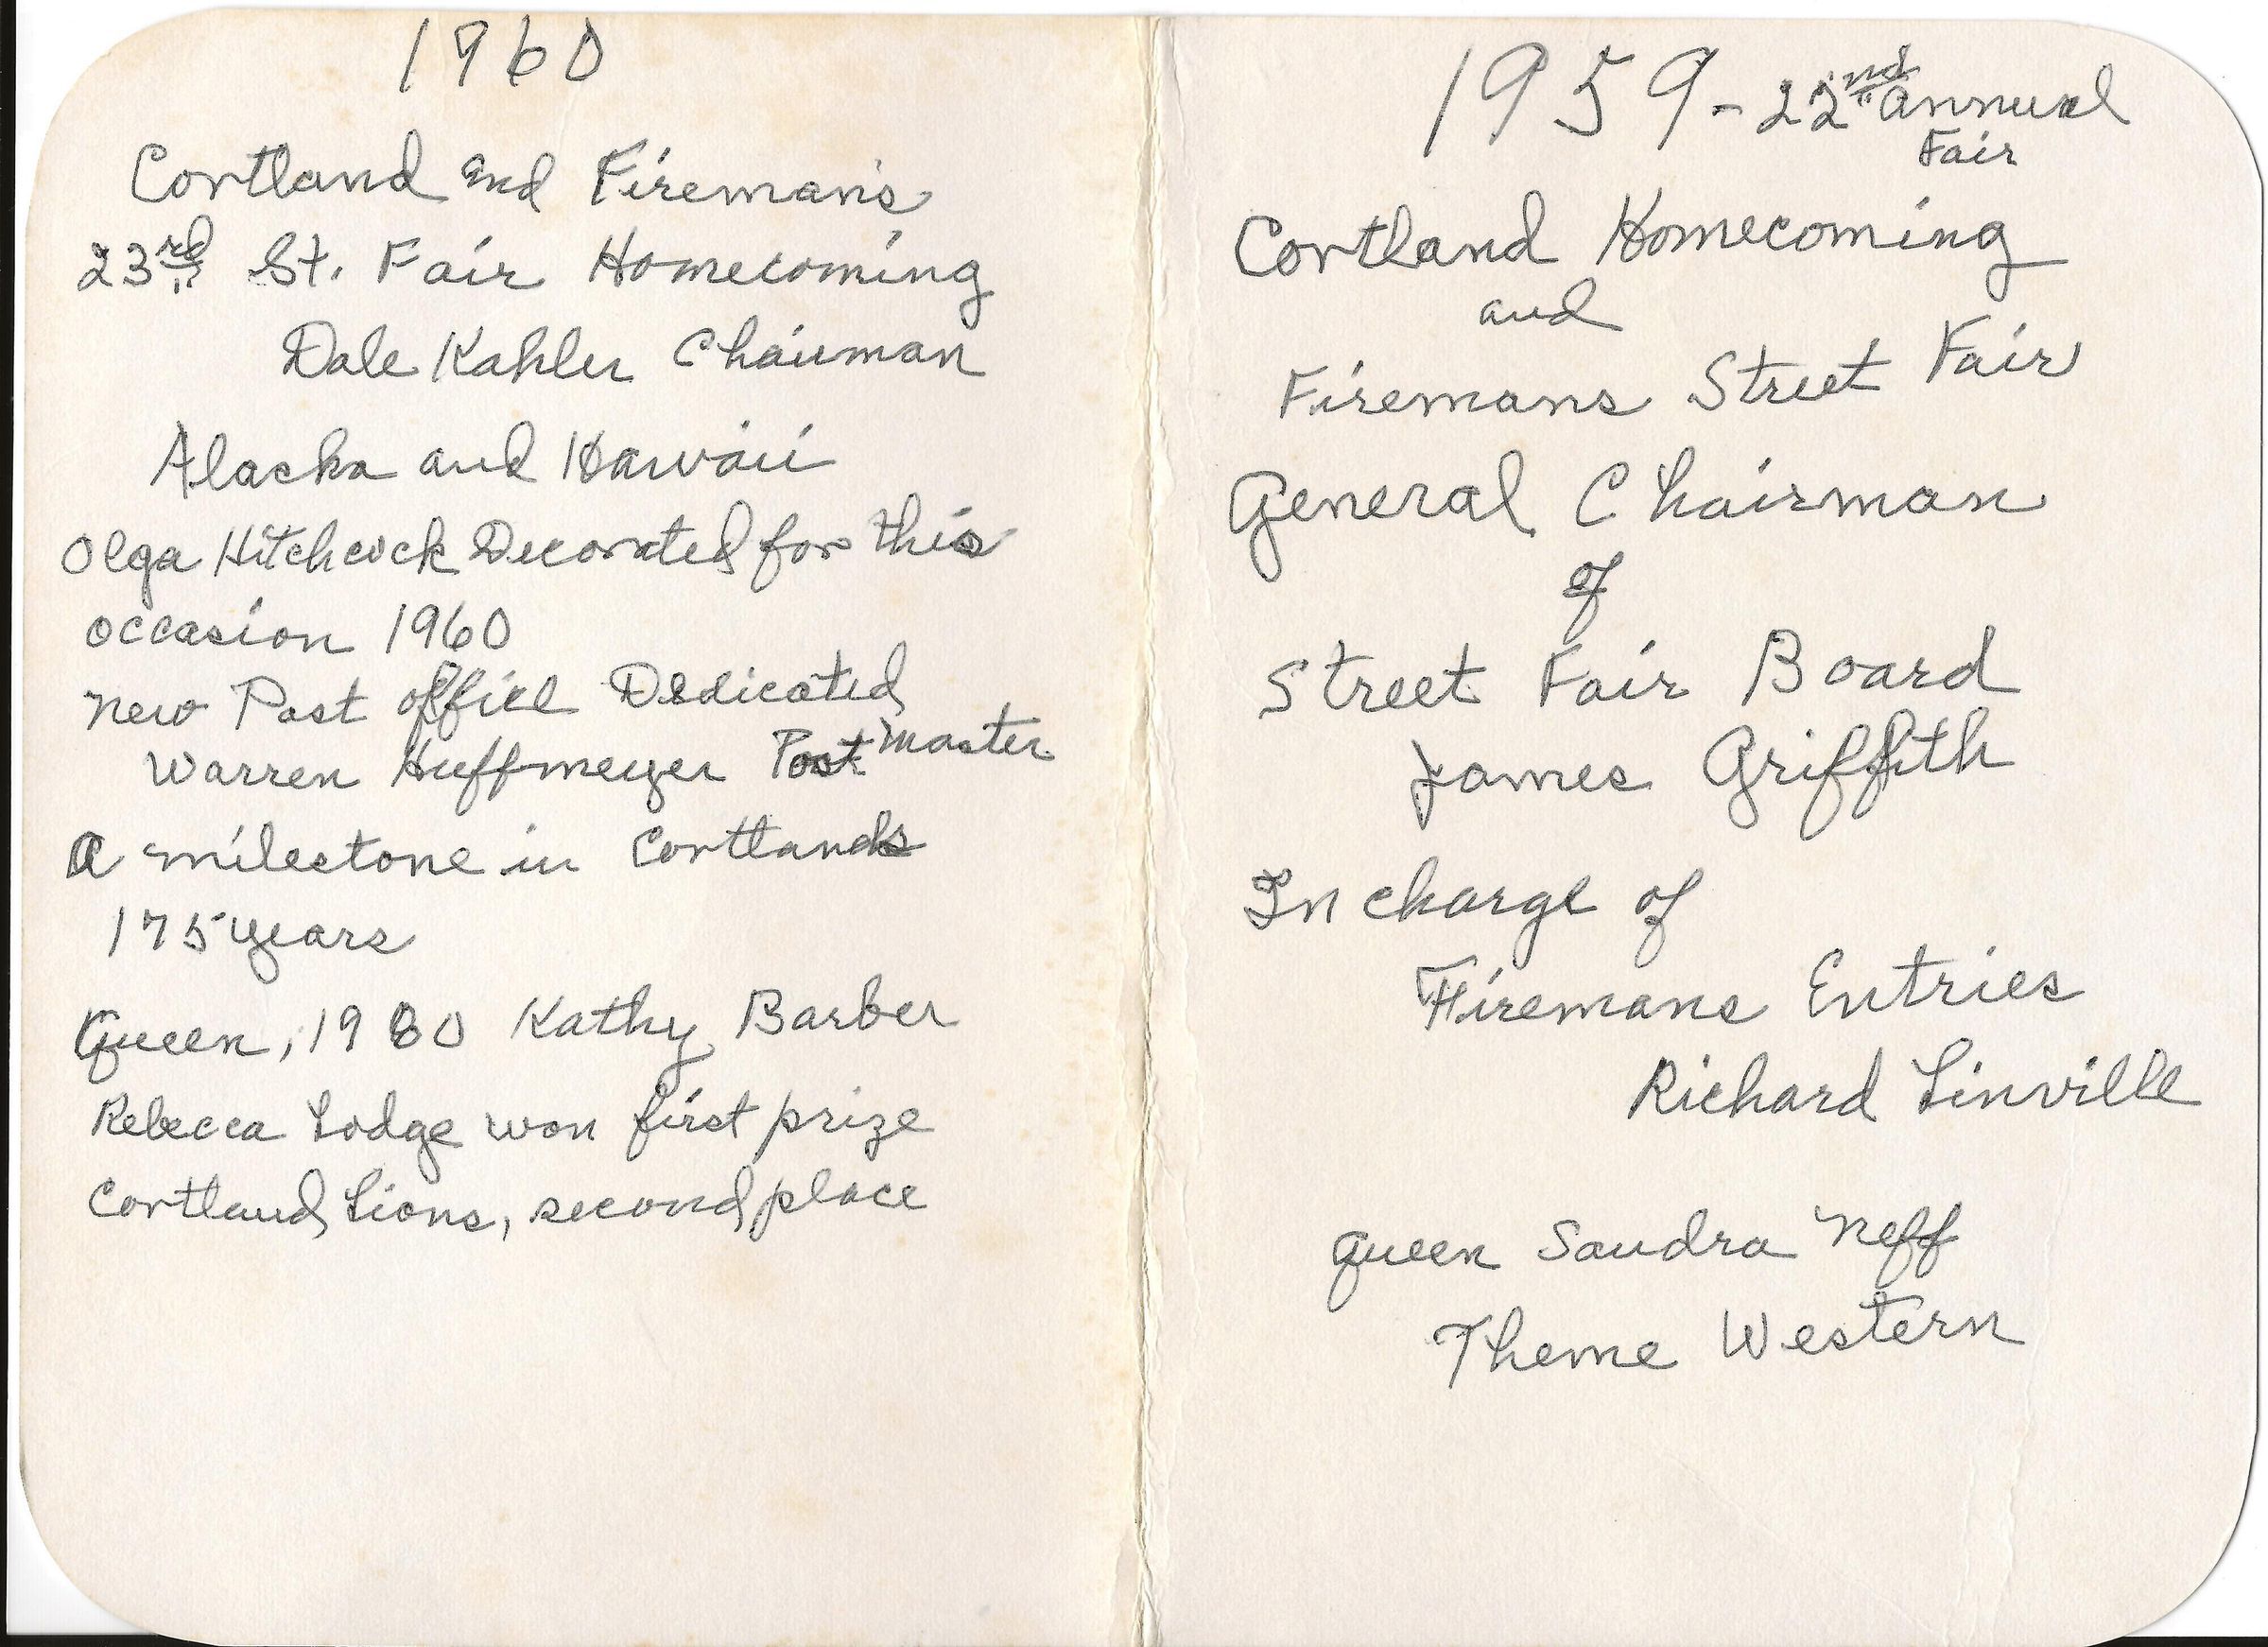 1960
Cortland and Fireman's
23rd St. Fair Homecoming
Dale Kahler Chairman
Alacka and Hawaii
Olga Hitchcock Decorated for this
occasion 1960
New Post office Dedicated
Warren Huffmeyer Postmaster
A milestone in Cortlands
175 years
Queen, 1960 Kathy Barber
Rebecca Lodge won first prize
Cortland Lions, second place
1959 - 22nd annual
Fair
Cortland Homecoming
and
Firemans Street Fair
General Chairman
of
Street Fair Board
James Griffith
In charge of
Firemans Entries
Richard Linville
Queen Sandra Neff
Theme Western